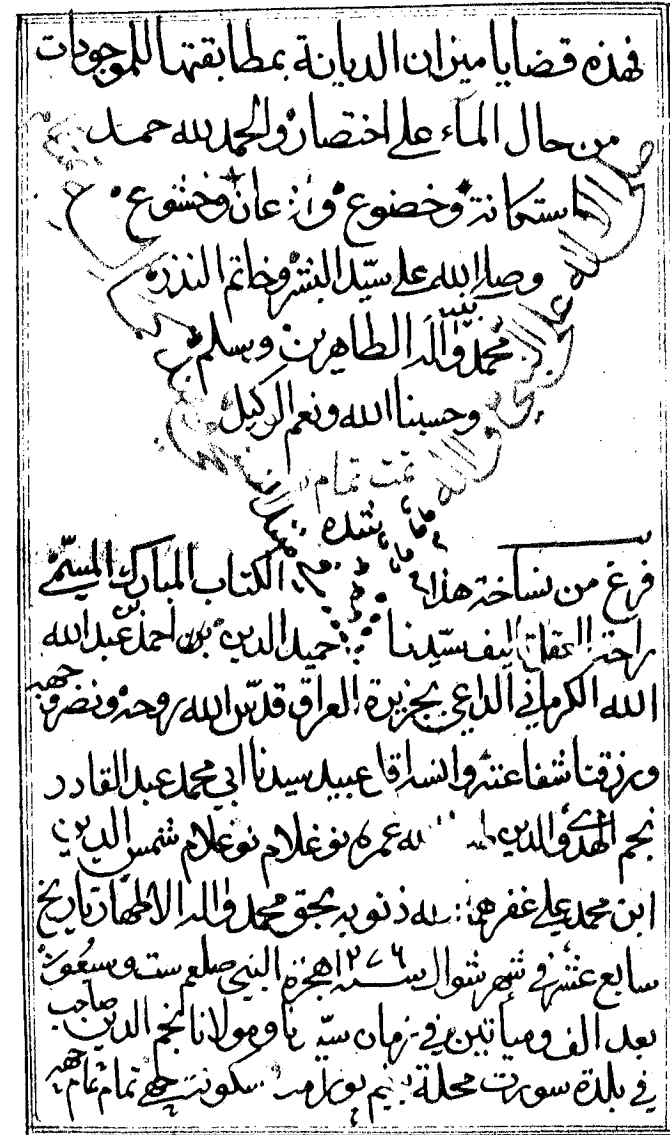 فهذه قضايا ميزان الديانة بمطابقتها للموجودات
من حال الماء على اختصار والحمد لله حمد
استكانة وخضوع واذعان وخشوع
وصلى الله على سيد البشر وخاتم النذر
محمد وآله الطاهرين ويسلم
وحسبنا الله ونعم الوكيل
تمت تمام
فرغ من نساخة هذا الكتاب المبارك المسمى
راحة العقل تاليف سيدنا حميد الدين بن احمد بن عبد الله
الله الكرماني الداعي بجزيرة العراق قدس الله روحه ونضر وجهه
ورزقنا شفاعته وانسه اقل عبيد سيدنا ابي محمد عبد القادر
نجم الهدى والدين الله عمره نو غلام نو غلام شمس الدين
ابن محمد علي غفر الله ذنوبه بحق محمد وآله الاطهار تاريخ
سابع عشر في شهر شوال سنه ١٢٧٦ هجرة النبي صلعم ست وسبعون
بعد الف وميأتين في زمان سيدنا ومولانا نجم الدين صاحب
في بلدة سورت محلة سكونت چهے تمام تمام چهے